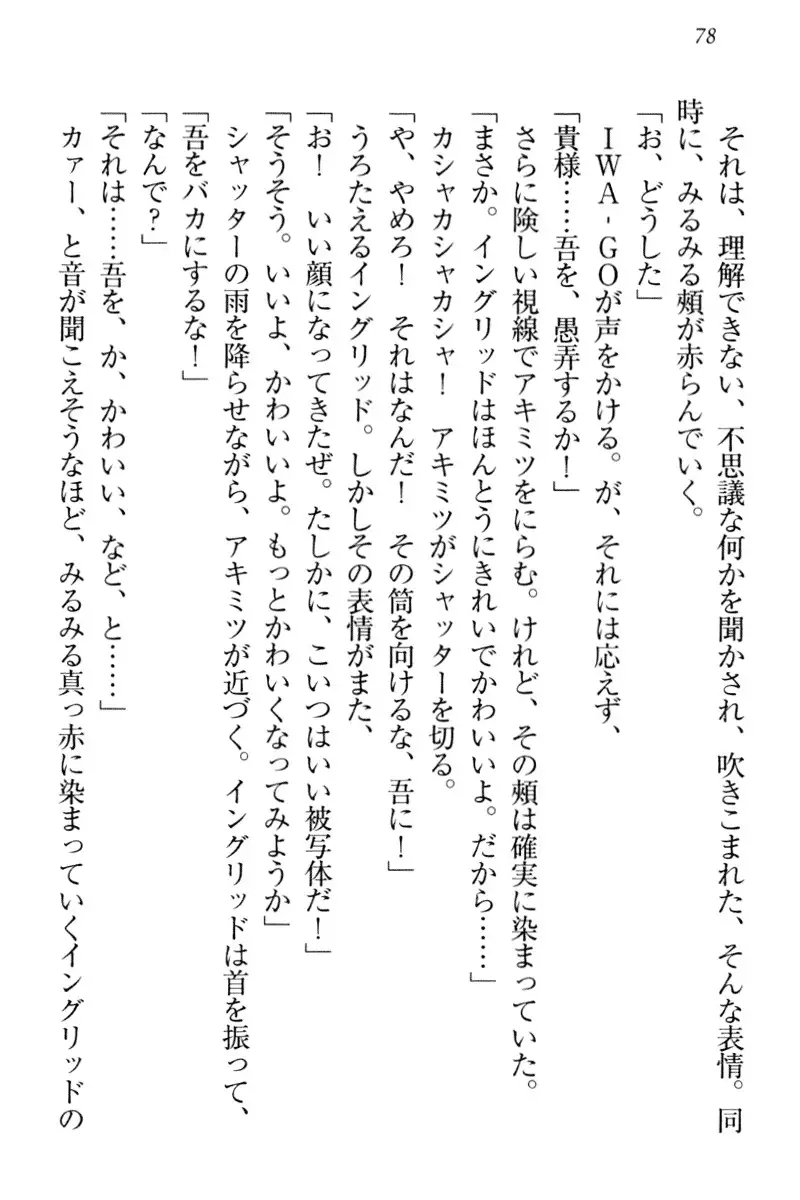 78
それは、理解できない、不思議な何かを聞かされ、吹きこまれた、そんな表情。同
時に、みるみる頰が赤らんでいく。
「お、どうした」
ＩＷＡ‐ＧＯが声をかける。が、それには応えず、
「貴様……吾を、愚弄するか！」
さらに険しい視線でアキミツをにらむ。けれど、その頰は確実に染まっていた。
「まさか。イングリッドはほんとうにきれいでかわいいよ。だから……」
カシャカシャカシャ！　アキミツがシャッターを切る。
「や、やめろ！　それはなんだ！　その筒を向けるな、吾に！」
うろたえるイングリッド。しかしその表情がまた、
「お！　いい顔になってきたぜ。たしかに、こいつはいい被写体だ！」
「そうそう。いいよ、かわいいよ。もっとかわいくなってみようか」
シャッターの雨を降らせながら、アキミツが近づく。イングリッドは首を振って、
「吾をバカにするな！」
「なんで？」
「それは……吾を、か、かわいい、など、と……」
カァー、と音が聞こえそうなほど、みるみる真っ赤に染まっていくイングリッドの